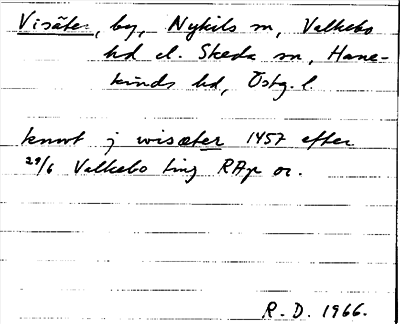 Visäter, by, Nykils sn, Valkebo
hd el. Skeda sn, Hane-
kinds hd, Östg. l.
knwt j wisæter 1457 efter
29/6 Valkebo ting RAp or.
R. D. 1966.